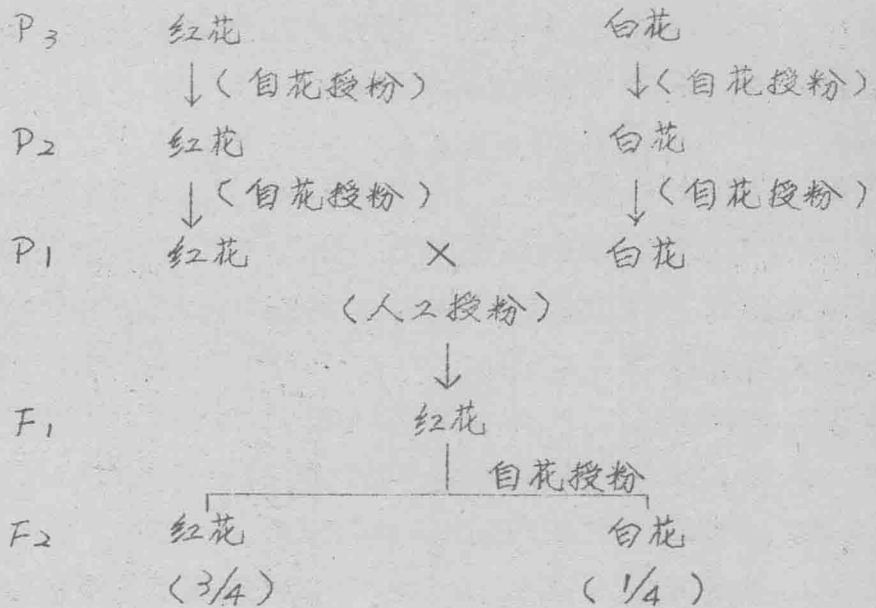 P3 红花 白花
↓（自花授粉） ↓（自花授粉）
P2 红花 白花
↓（自花授粉） ↓（自花授粉）
P1 红花 × 白花
（人工授粉）
↓
F1 红花
自花授粉
F2 红花 白花
（3/4） （1/4）